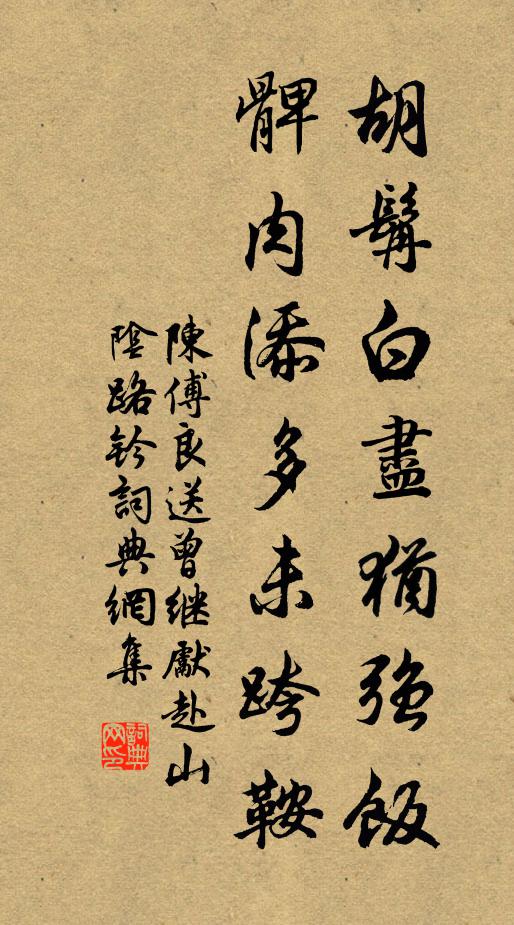 胡髯白盡猶強飯
髀肉添多未跨鞍
陳傅良送曾繼獻赴山
陰路鈐詞典網集
詞典
网印